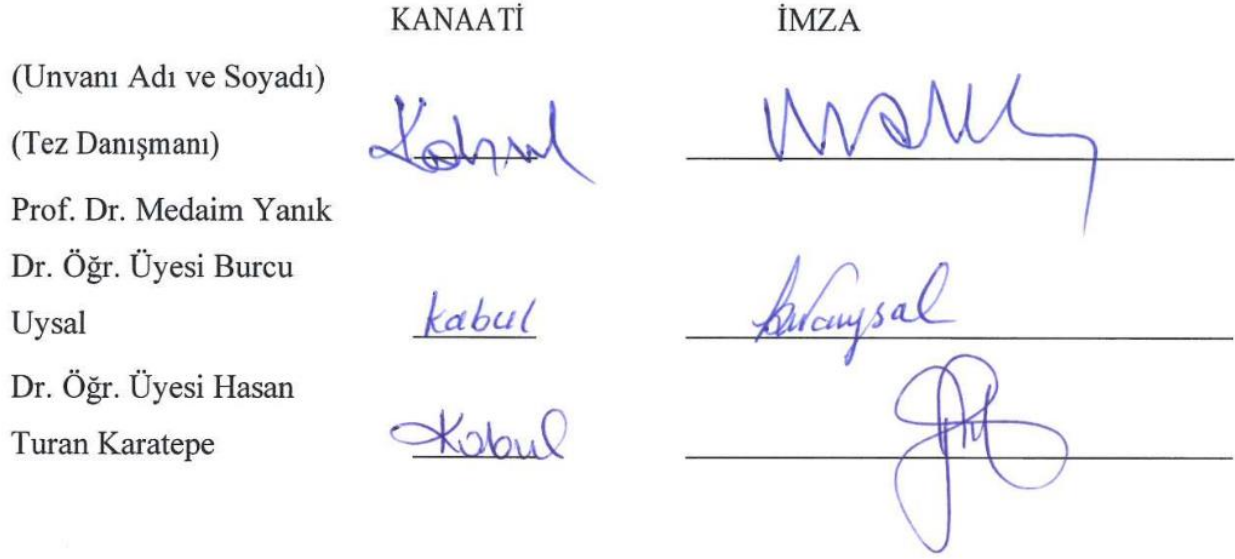 KANAATİ İMZA
(Unvanı Adı ve Soyadı)
(Tez Danışmanı) Kabul
Prof. Dr. Medaim Yanık
Dr. Öğr. Üyesi Burcu
Uysal kabul
Dr. Öğr. Üyesi Hasan
Turan Karatepe Kabul